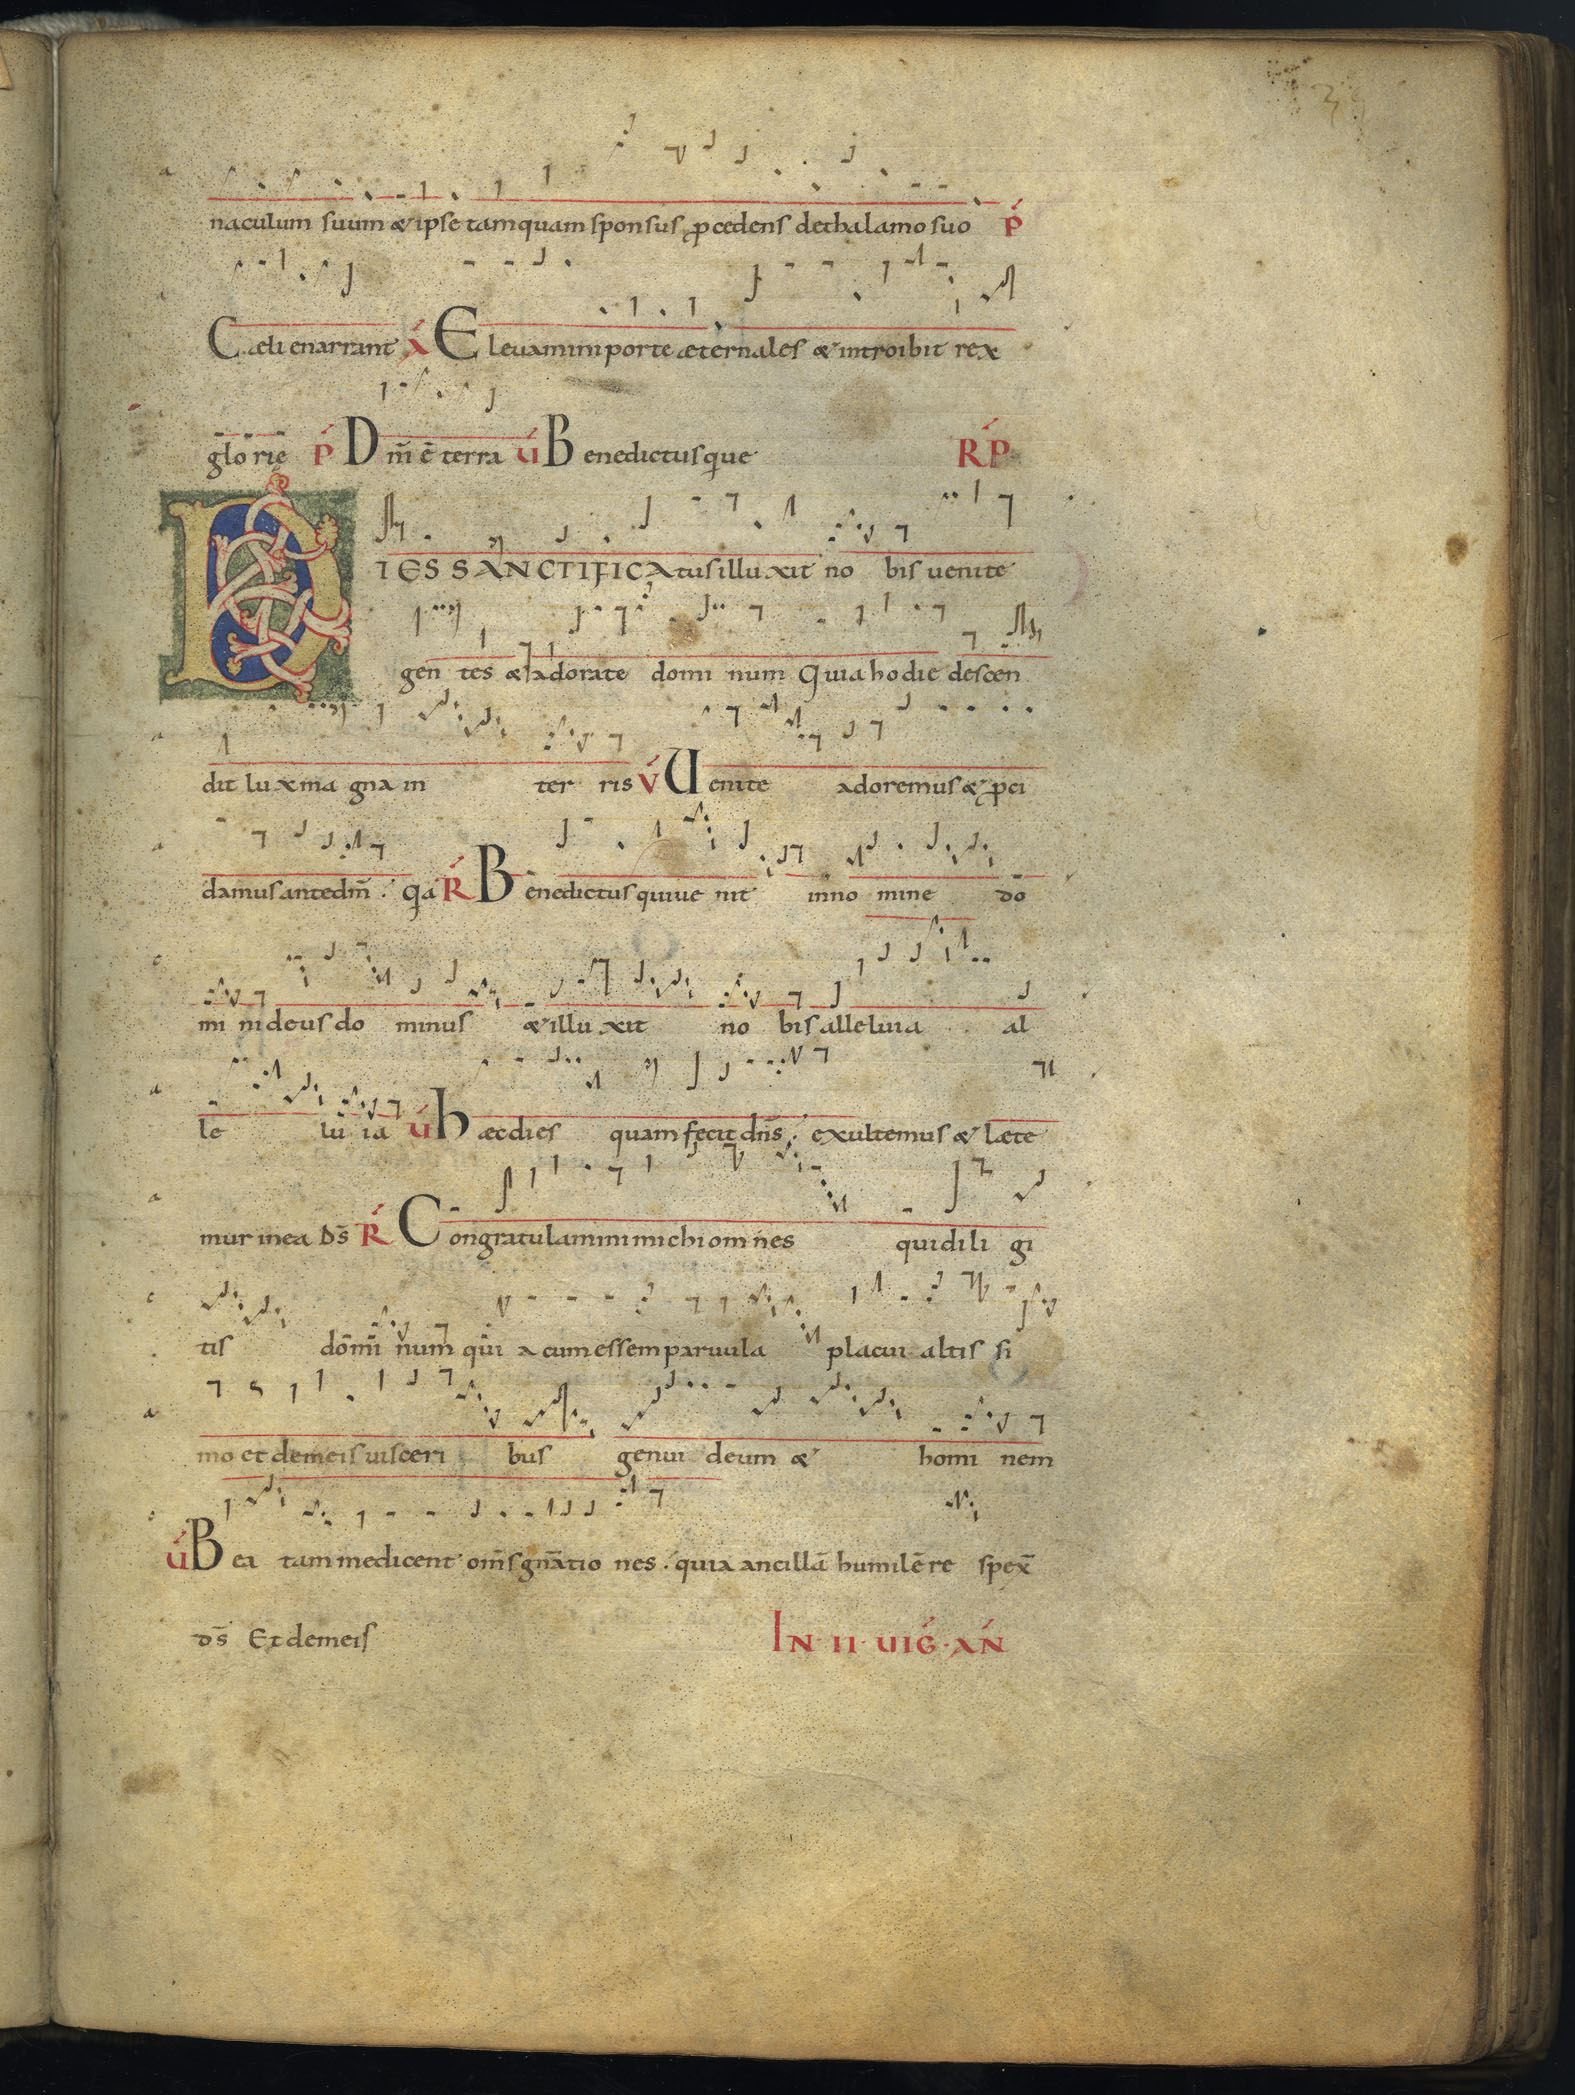 naculum suum & ipse tamquam sponsus pcedens dethalamo suo P
Cæli enarrant A Eleuamini porte æternales & introibit rex
glo rię P Dm̄ ē terra V Benedictusque RP
DIES SANCTIFICAtus illu xit no bis uenite
gen tes & adorate domi num Quia hodie descen
dit lu x ma gna in ter ris V Uenite adoremus & pci
damus antedm̄. qa R Benedictus quiue nit inno mine do
mi ni deus do minus & illu xit no bis alleluia al
le lu ia V hæcdies quam fecit dn̄s. exultemus & læte
mur inea Ds̄ R Congratulamini michi omnes quidili gi
tis domi num qui a cum essem paruula placui altis si
mo et demeis uisceri bus genui deum & homi nem
V Bea tam medicent om̄s gn̄atio nes. quia ancillā humilē re spex̄
ds̄ Et demeis IN·II·UIG·AN